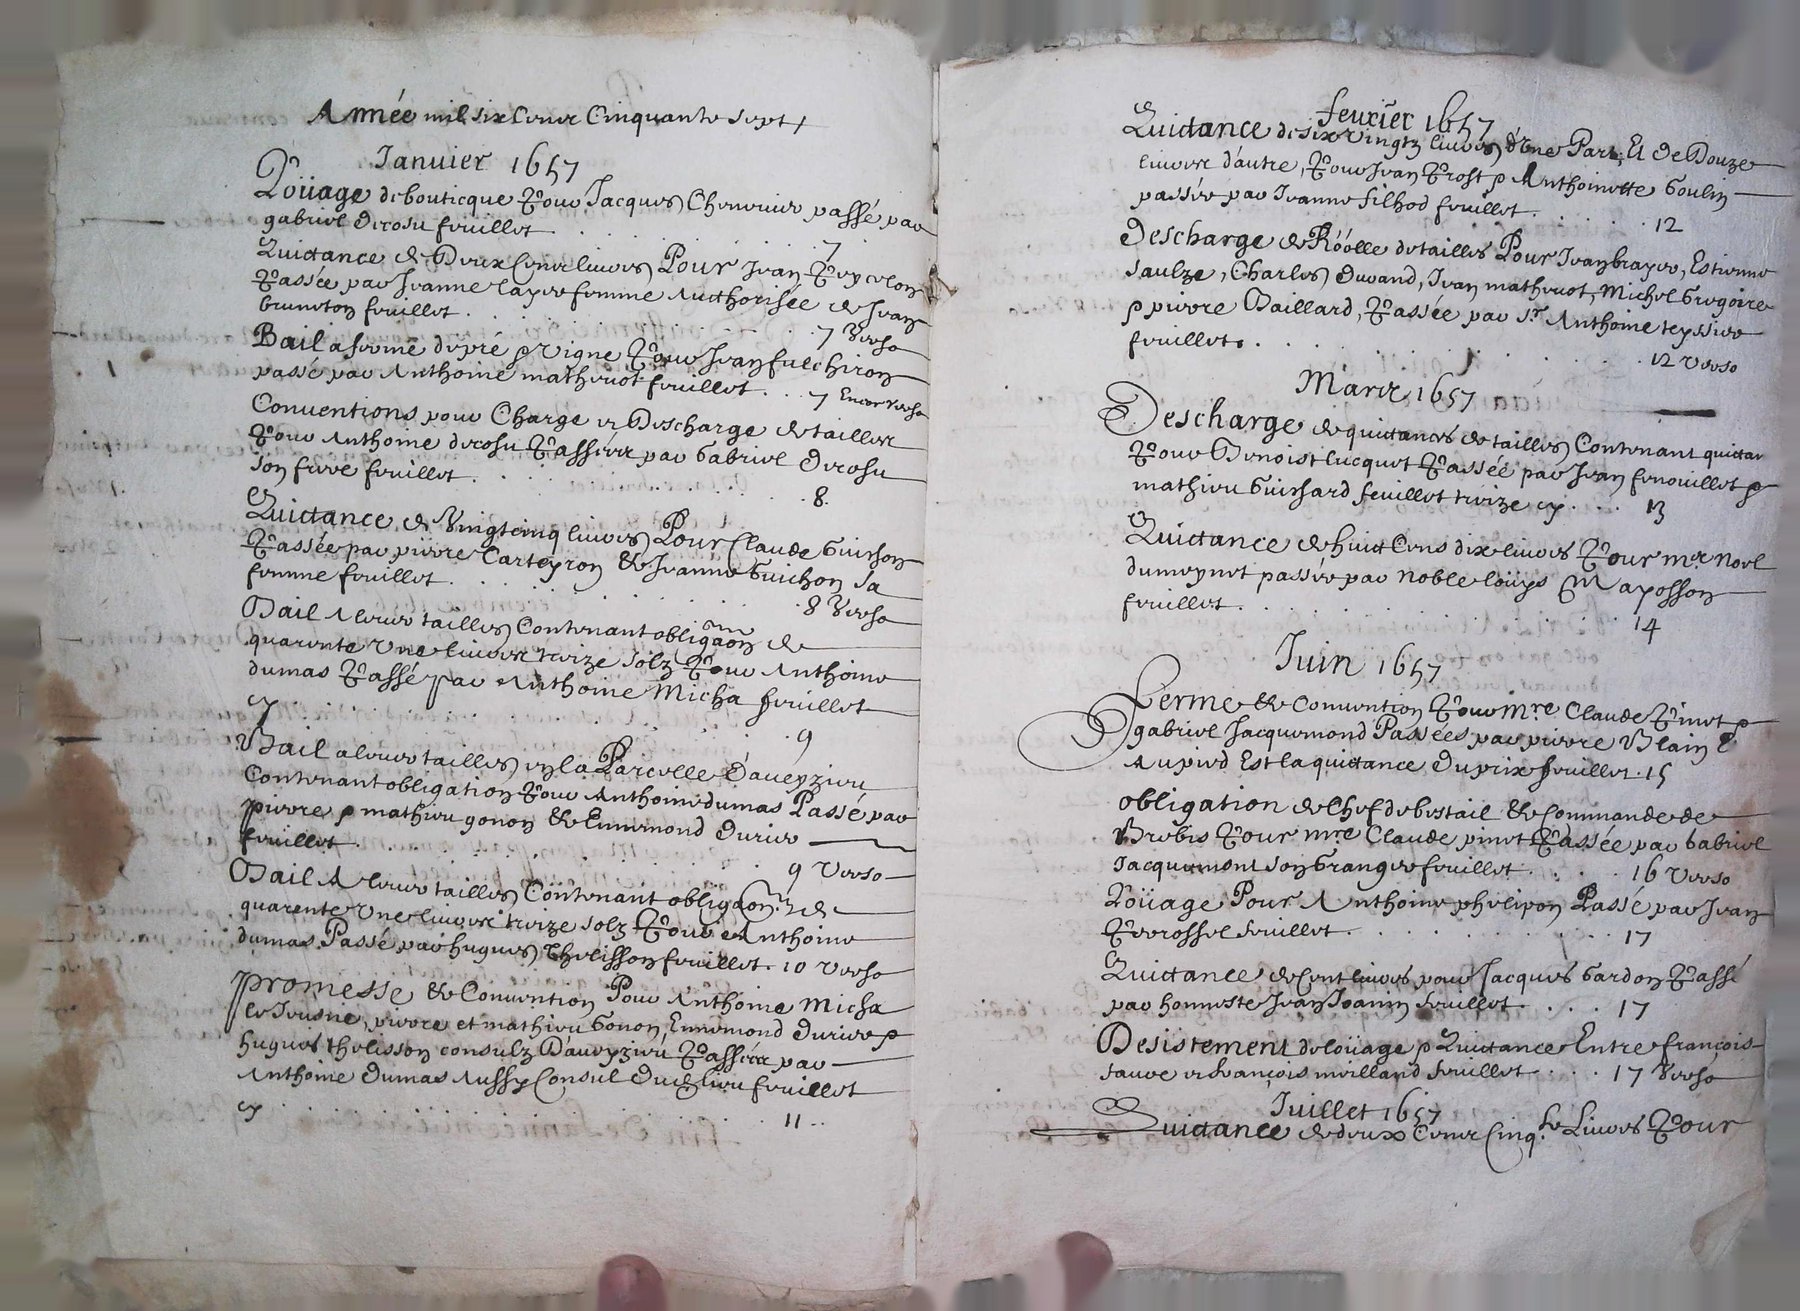 Année mil six Cens Cinquante sept
Januier 1657
Loüage de bouticque Pour Jacques Cheneuier passé par
gabriel Decosu feuillet . . . 7
Quittance de Deux Cens liures Pour Jean Peycelon
Passée par Jeanne Layre femme Authorisée de Jean
bruneton feuillet . . . 7 Verso
Bail a ferme de pré & Vigne Pour Jean fulchiron
passé par Anthoine matheuot feuillet . . . 7 Encor verso
Conuentions pour Charge et Descharge de tailles
Pour Anthoine decosu Passées par Gabriel Decosu
son frere feuillet . . . 8
Quittance de Vingtcinq liures Pour Claude Guichon
Passée par pierre Carteyron & Jeanne Guichon sa
femme feuillet . . . 8 Verso
Bail A leuer tailles Contenant obligaon de
quarente Une liures treize solz Pour Anthoine
dumas Passé par Anthoine Micha feuillet
cy . . . 9
Bail a leuer tailles en la Parcelle d'aueyzieu
Contenant obligation Pour Anthoine dumas Passé par
pierre & mathieu gonon & Ennemond Durier
feuillet . . . 9 Verso
Bail A leuer tailles Contenant obligaon de
quarente Une liures treize solz Pour Anthoine
dumas Passé par hugues thelisson feuillet . 10 Verso
Promesse & Conuention Pour Anthoine Micha
le Jeusne, pierre et mathieu Gonon Ennemond Durier &
hugues thelisson consulz D'aueyzieu Passées par
Anthoine Dumas Aussy Consul dud. lieu feuillet
cy . . . 11
feurier 1657
Quittance de six Vingtz liures d'Vne Part, Et de Douze
liures d'autre, Pour Jean Prost & Anthoinette Goulin
passée par Jeanne filhod feuillet . . . 12
Descharge de Róólle de tailles Pour Jean brayer, Estienne
Saulze, Charles Durand, Jean matheuot, Michel Gregoire
& pierre Baillard, Passée par sr. Anthoine teyssier
feuillet . . . 12 Verso
Mars 1657
Descharge de quittances de tailles Contenant quittan
Pour Benoist Lucquet Passée par Jean fenouillet &
mathieu Guichard feuillet treize cy . . . 13
Quittance de huict Cens dix liures Pour mre Noel
dumeynet passée par Noble Loüys Mayosson
feuillet . . . 14
Juin 1657
Ferme & Conuention Pour Mre Claude Pinet &
gabriel Jacquemond Passées par pierre Blain &
Au pied Est la quittance Du prix feuillet . 15
obligation de Chef de bestail & Commande de
Brebis Pour mre Claude pinet Passée par Gabriel
Jacquemont son Granger feuillet . . . 16 Verso
Loüage Pour Anthoine phelipon Passé par Jean
Perrossel feuillet . . . 17
Quittance de Cent liures pour Jacques Gardon Passé
par honneste Jean Joanin feuillet . . . 17
Desistement de loüage & Quittance Entre françois
faure et françois meilland feuillet . . . 17 Verso
Juillet 1657
Quittance de deux Cens Cinq.te Liures Pour